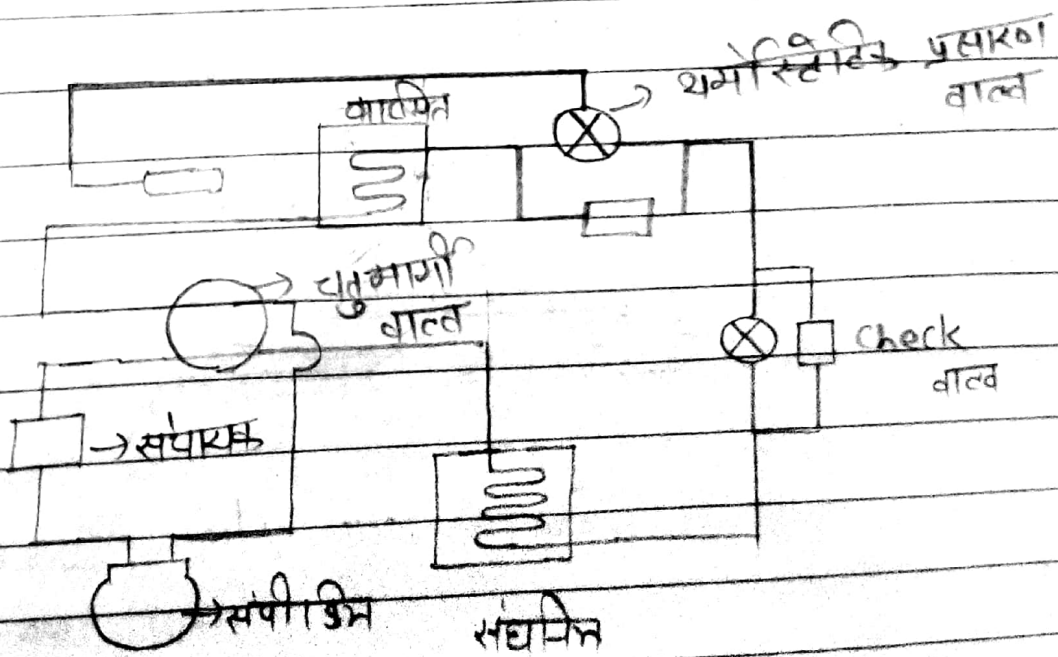 थर्मोस्टेटिक प्रसारण
वाल्व
वाष्पित्र
चतुमार्गी
वाल्व
Check
वाल्व
→संचायक
→संपीडित्र
संघनित्र